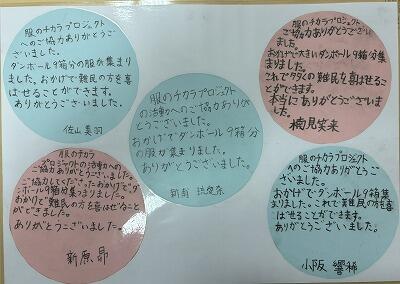 服のチカラプロジェクト
へのご協力ありがとうご
ざいました。
ダンボール9箱分の服が集まり
ました。おかげで難民の方を喜
ばせることができます。
ありがとうございました。
佐山 美羽
服のチカラプロジェクト
ご協力ありがとうございまし
た。
おかげで大きいダンボール9箱分集
まりました。
これで多くの難民を喜ばせること
ができます。
本当にありがとうございま
した。
楠見笑来
服のチカラプロジェクト
の活動へのご協力ありが
とうございました。
おかげでダンボール9箱分
の服が集まりました。
ありがとうございました。
新南
服のチカラ
プロジェクトの活動へのご
協力ありがとうございました。
ご協力してくださったおかげでダン
ボール9箱分集まりました。
おかげで難民の方を喜ばせること
ができました。
ありがとうございました。
新原 昴
服のチカラプロジェクト
へのご協力ありがとうござ
いました。
おかげでダンボール9箱集
まりました。これで難民の方を喜
ばせることができます。
ありがとうございました。
小阪 響稀